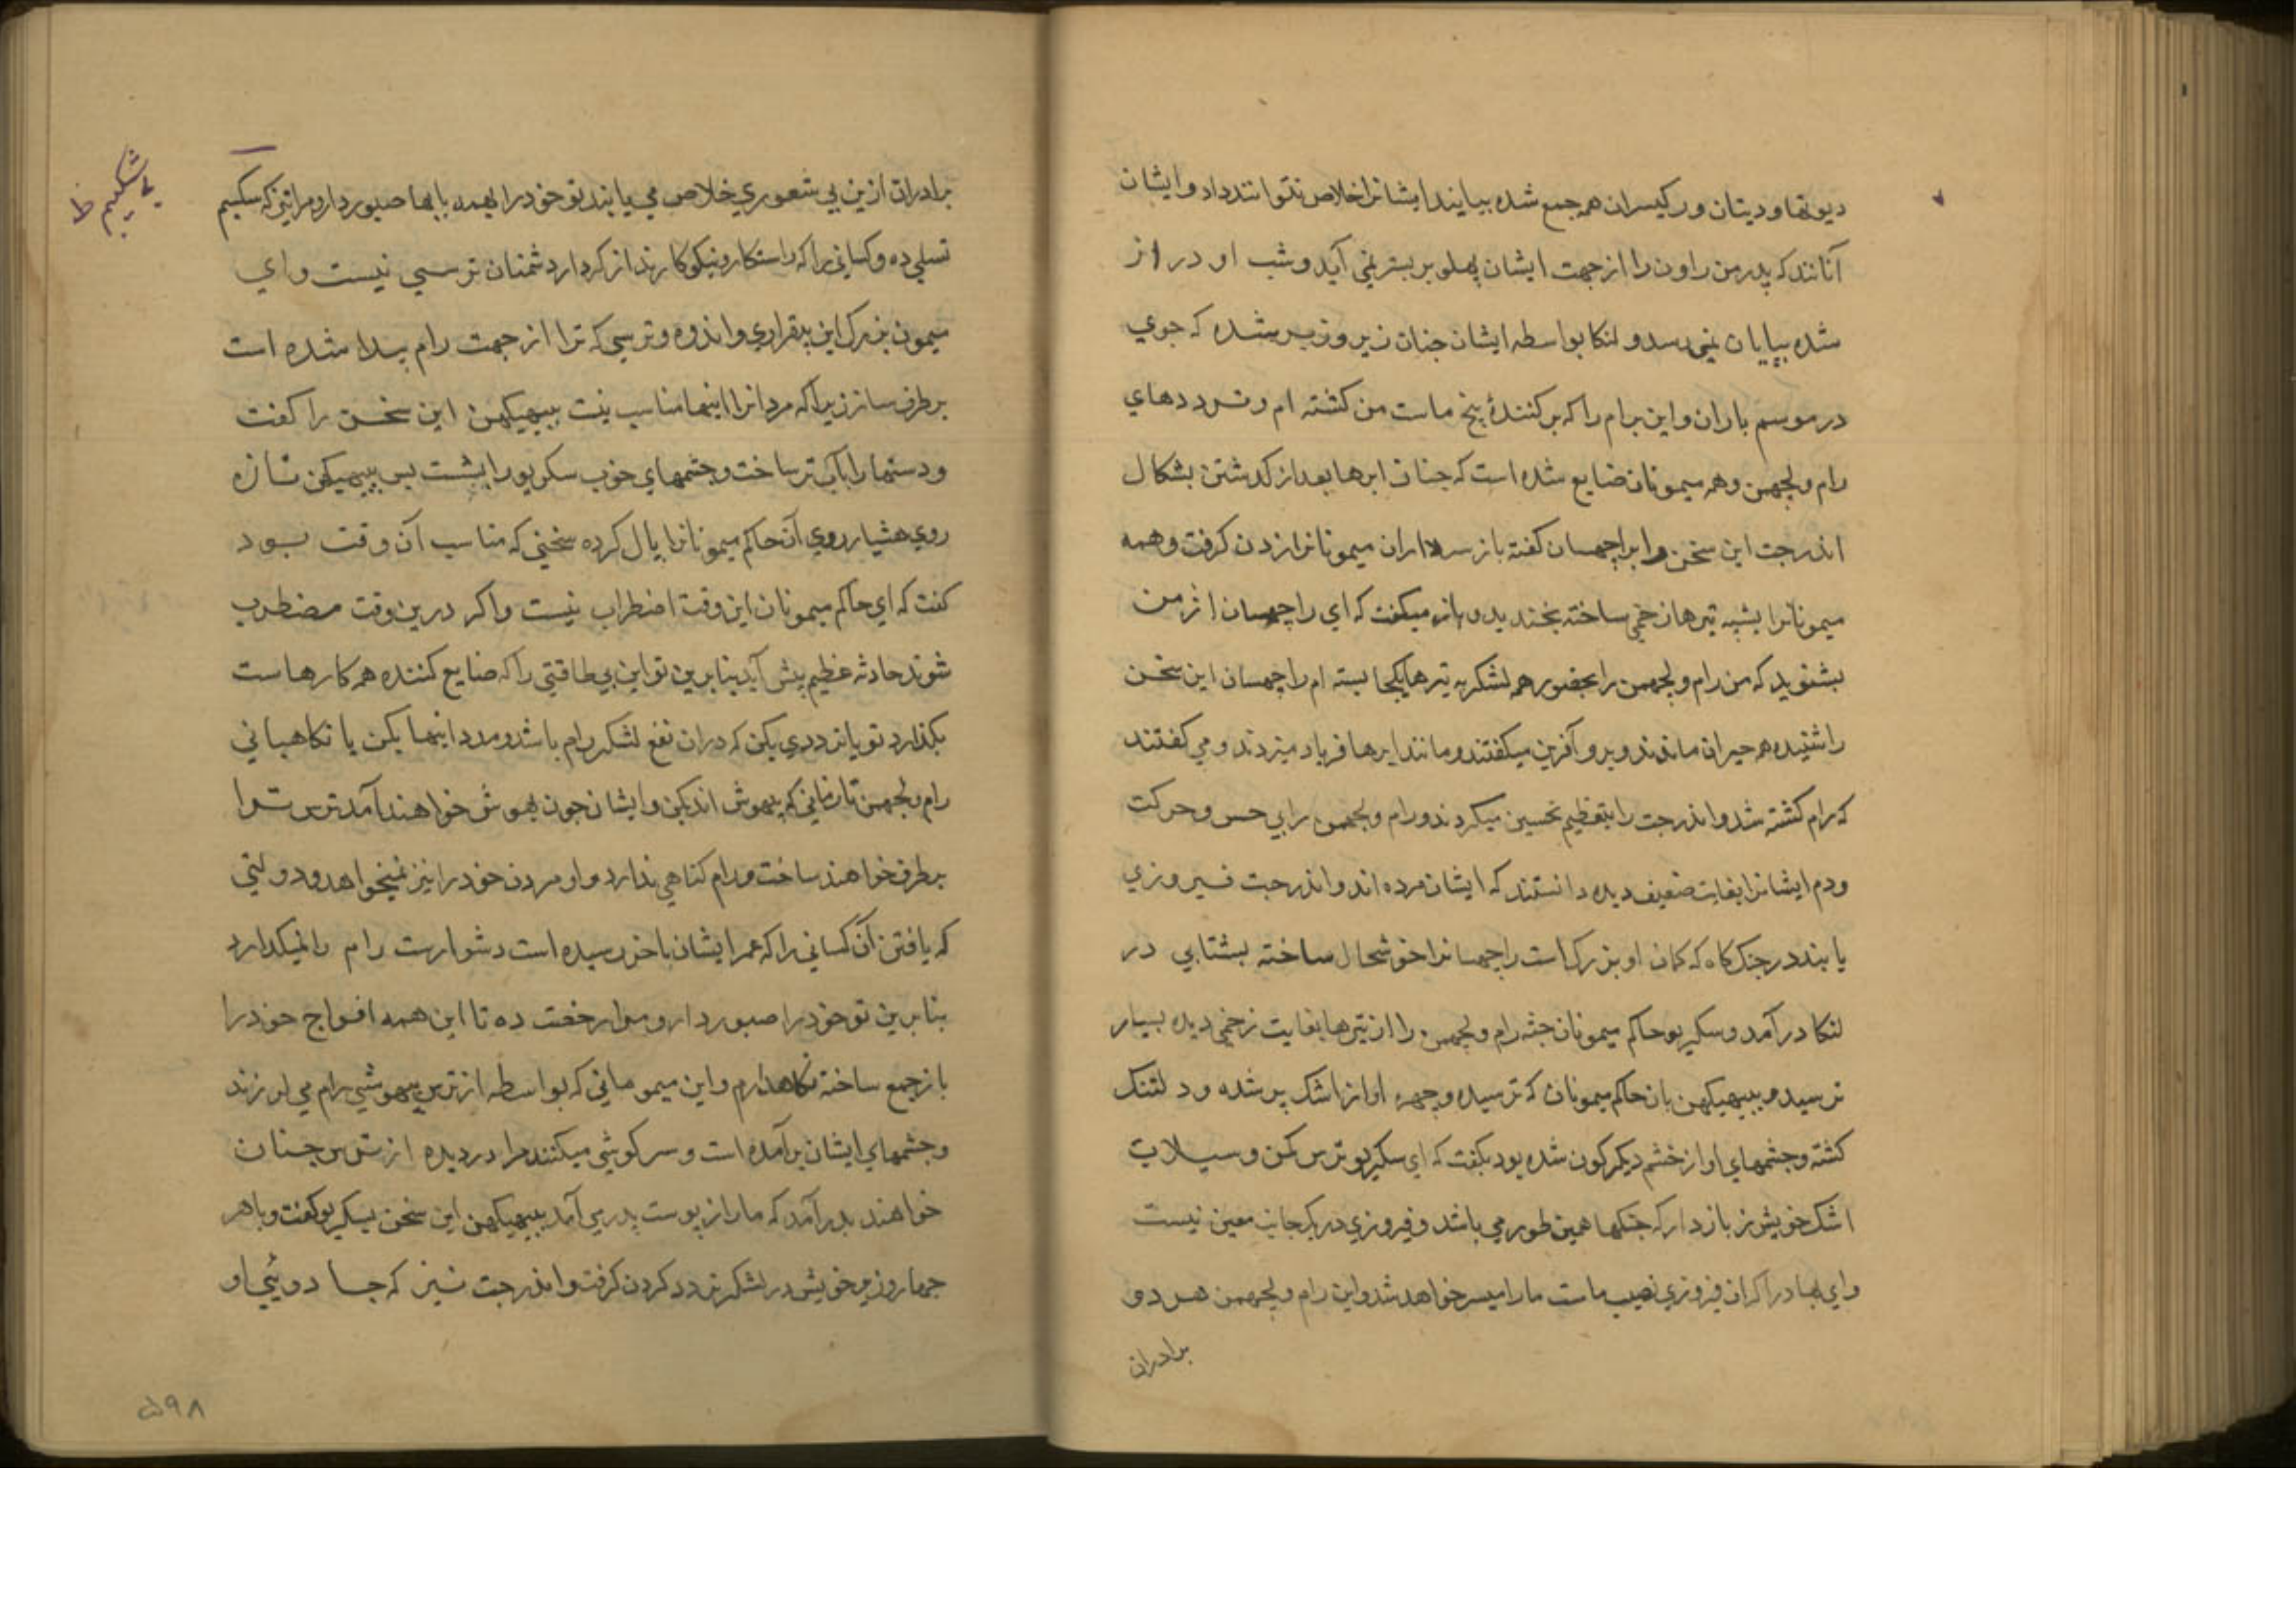 دیوتها و دیتان و رکیسران همه جمع شده بیایند ایشانرا خلاص نتوانند داد و ایشان
آنانند که پدر من راون را از جهت ایشان پهلو بر بستر نمی آید و شب او دراز
شده بپایان نمی رسد و لنکا بواسطه ایشان جنان زیر و زبر شده که جوی
در موسم باران و این برام را که برکنندهٔ بیخ ماست من کشته ام و ترددهای
رام و لچهمن و همه میمونان ضایع شده است که جنان ابرها بعد از کدشتن بشکال
اندرجت این سخن را براچهسان کفته باز سرداران میمونانرا زدن کرفت و همه
میمونانرا بشپه تیرها زخمی ساخته بخندید و باز میکفت که ای راچهسان از من
بشنوید که من رام و لچهمن را بحضور همه لشکر به تیرها یکجا بسته ام راچهسان این سخن
را شنیده همه حیران ماندند و برو آفرین میکفتند و مانند ابرها فریاد میزدند و می کفتند
که رام کشته شد و اندرجت را بتعظیم تحسین میکردند و رام و لچهمن را بی حس و حرکت
و دم ایشانرا بغایت ضعیف دیده دانستند که ایشان مرده اند و اندرجت فیروزی
یابنده در جنک کاه که کمان او بزرک است راچهسانرا خوشحال ساخته بشتابی در
لنکا درآمد و سکریو حاکم میمونان جثه رام و لچهمن را از تیرها بغایت زخمی دیده بسیار
ترسید و ببهیکهن بان حاکم میمونان که ترسیده و چهره او از اشک پر شده و دلتنک
کشته و جشمهای او از خشم دیکرکون شده بود بکفت که ای سکریو ترس مکن و سیلاب
اشک خویش باز دار که جنکها همین طور می باشد و فیروزی در یک جانب معین نیست
و ای بهادر اکر از فیروزی نصیب ماست ما را میسر خواهد شد و این رام و لچهمن هر دو
برادران
برادران ازین بی شعوری خلاص می یابند تو خود را بهمه بابها صبور دار و مرا نیز که سکیم
بی شکیبم ظ
تسلی ده و کسانی را که راستکار و نیکوکارند از کردار دشمنان ترسی نیست و ای
میمون بزرک این بیقراری و اندوه و ترسی که ترا از جهت رام پیدا شده است
برطرف ساز زیرا که مردانرا اینها مناسب نیست ببهیکهن این سخن را کفت
و دستها را بآب تر ساخت و جشمهای خوب سکریو را بشست پس ببهیکهن تازه
روی هشیار روی آن حاکم میمونانرا پاک کرده سخنی که مناسب آن وقت بود
کفت که ای حاکم میمونان این وقت اضطراب نیست و اکر درین وقت مضطرب
شوند حادثه عظیم پیش آید بنابرین تو این بی طاقتی را که ضایع کننده همه کارهاست
بکذار و تو یا ترددی بکن که دران نفع لشکر رام باشد و مدد اینها بکن یا نکاهبانی
رام و لچهمن تا زمانی که بیهوش اند بکن و ایشان جون بهوش خواهند آمد ترس ترا
برطرف خواهند ساخت و رام کناهی ندارد و او مردن خود را نیز نمیخواهد و دولتی
که یافتن آن کسانی را که عمر ایشان باخر رسیده است دشوارست رام را نمیکذارد
بنابرین تو خود را صبور دار و مرا رخصت ده تا این همه افواج خود را
باز جمع ساخته نکاهدارم و این میمونانی که بواسطه از ترس بیهوشی رام می لرزند
و جشمهای ایشان برآمده است و سرکوشی میکنند مرا در دیده از ترس جنان
خواهند بدر آمد که مار از پوست بدر می آمد ببهیکهن این سخن بسکریو کفت و با هر
چهار وزیر خویش در لشکر تردد کردن کرفت و اندرجت نیز که جادوئی او
۵۹۸